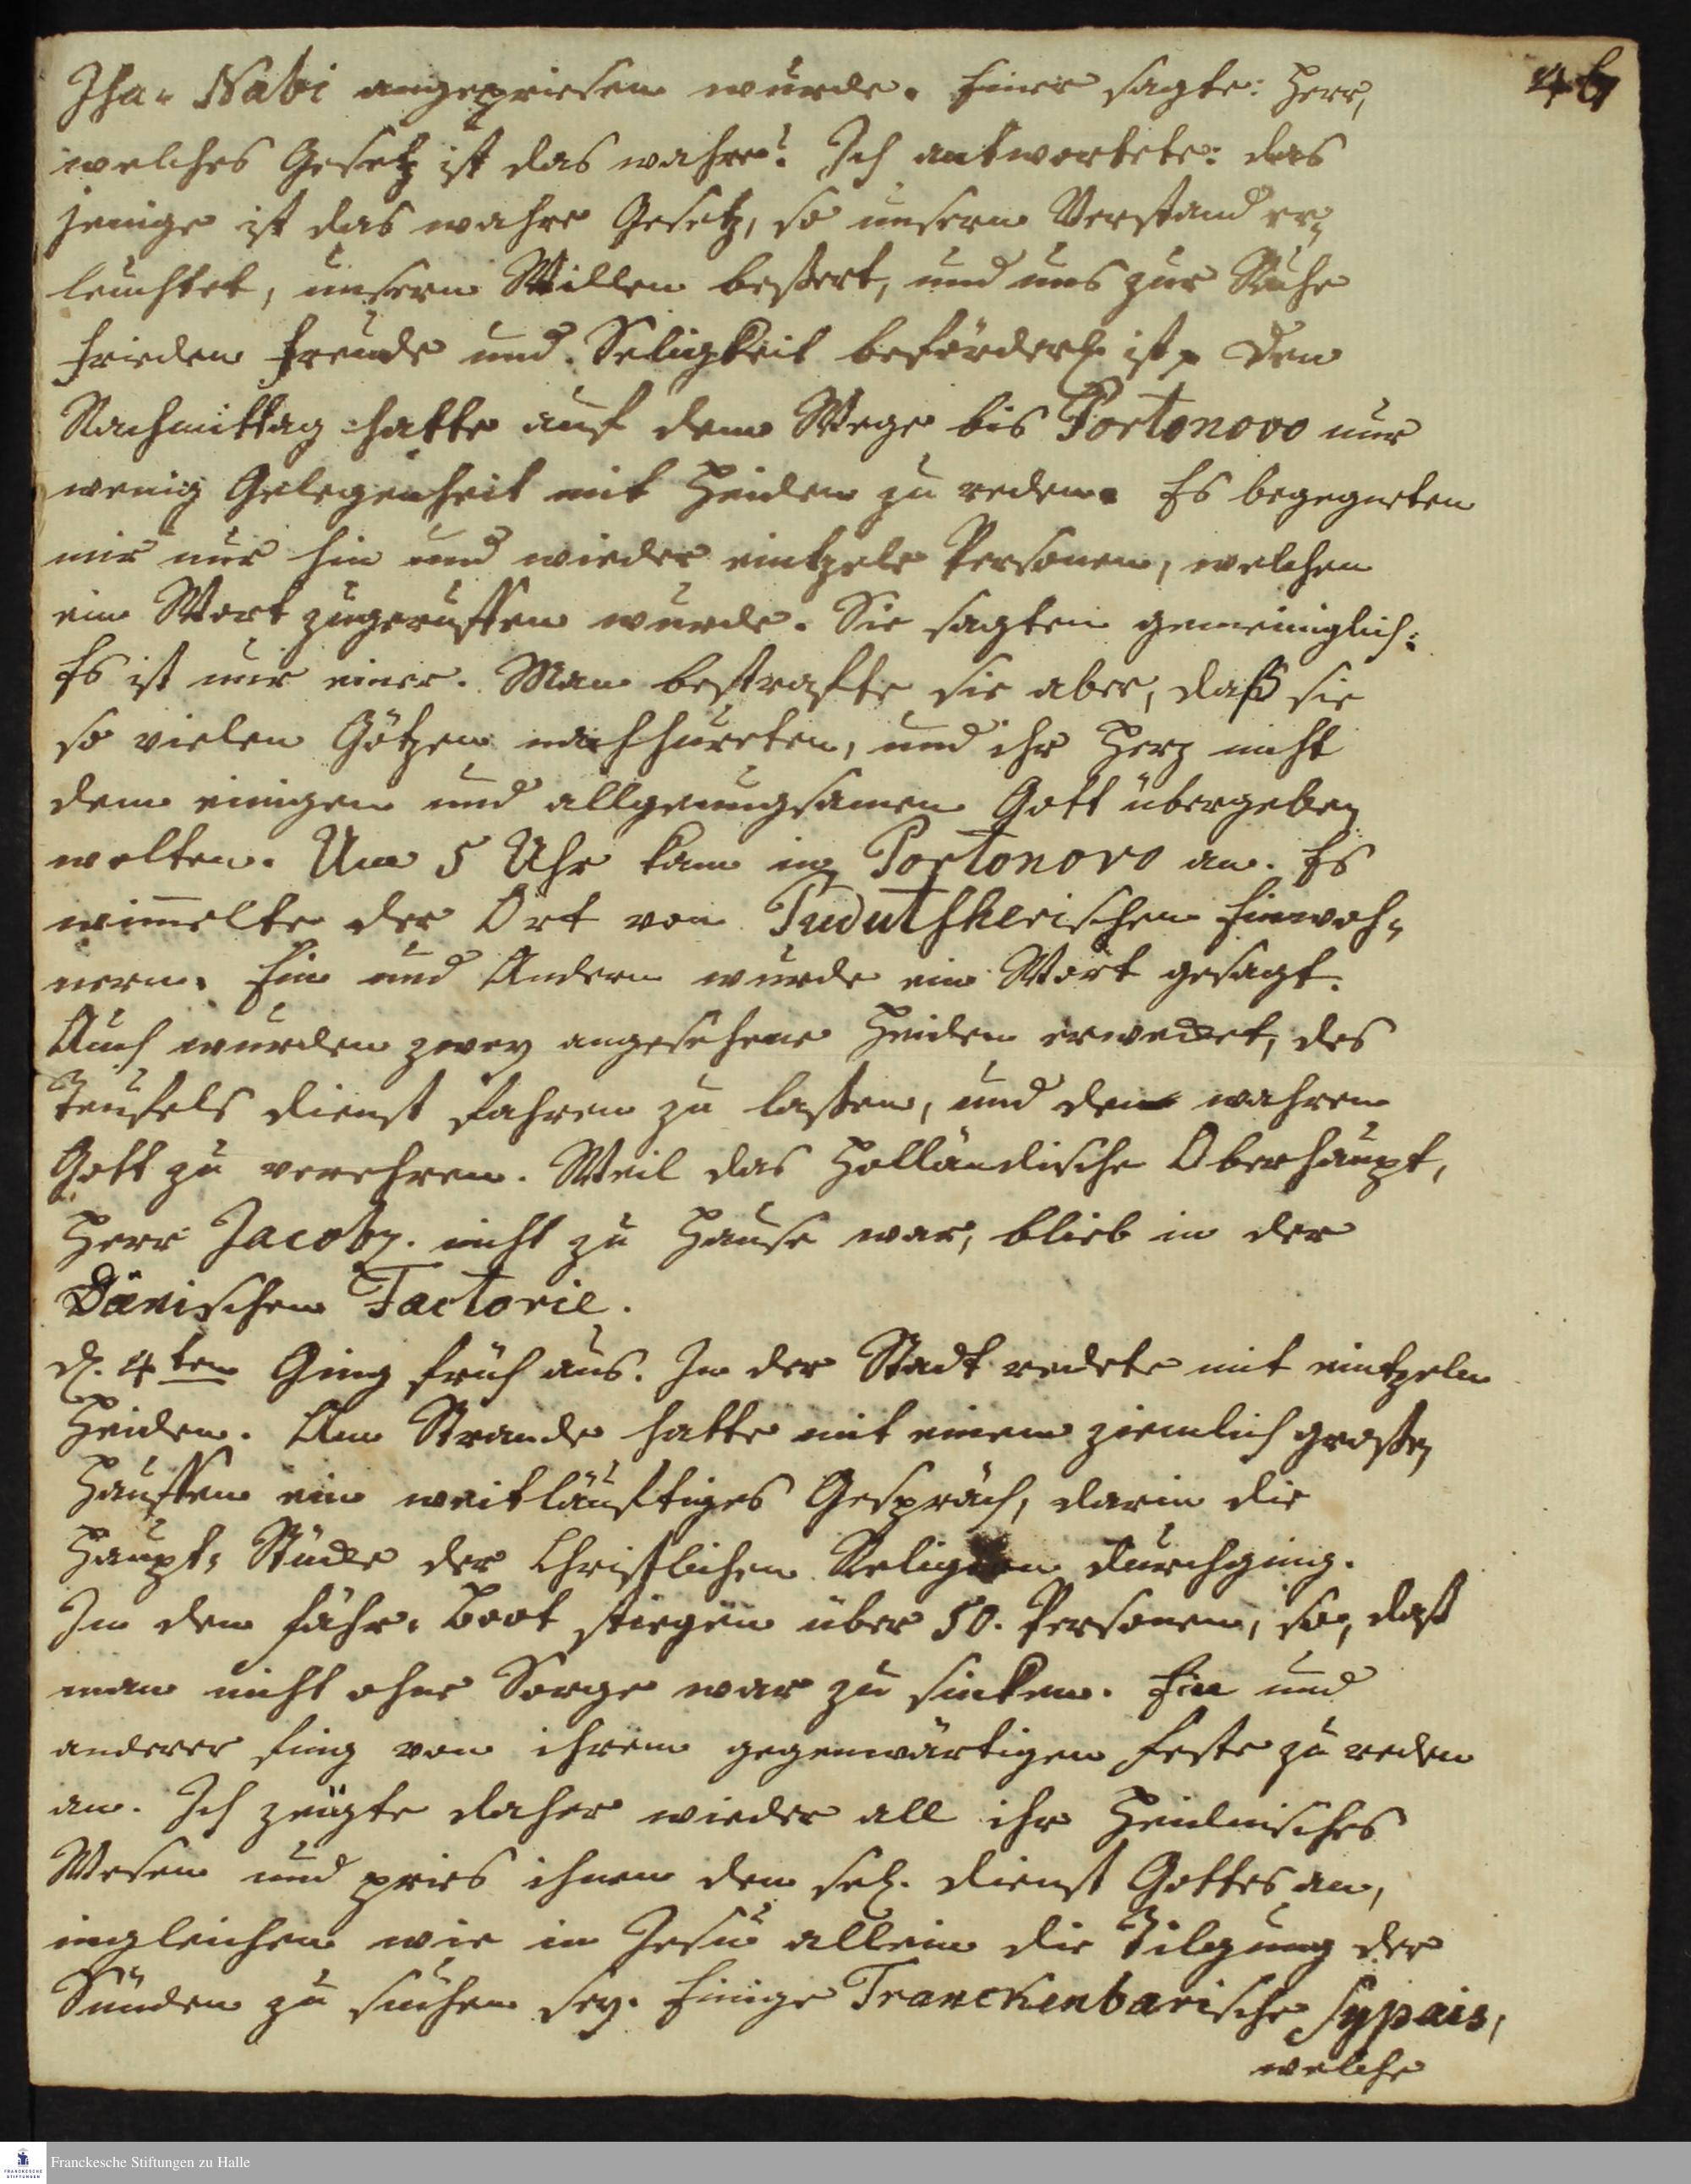 46
Isa- Nabi angepriesen wurde. Einer sagte: Herr,
welches Gesetz ist das wahre? Ich antwortete: das
jenige ist das wahre Gesetz, so unsern Verstand er-
leuchtet, unsern Willen beßert, und uns zur Ruhe
Frieden Freude und Seligkeit beförderl. ist. Den
Nachmittag hatte auf dem Wege bis Portonovo nur
wenig Gelegenheit mit Heiden zu reden. Es begegneten
mir nur hin und wieder eintzele Personen, welchen
ein Wort zugeruffen wurde. Sie sagten gemeiniglich:
Es ist nur einer. Man bestrafte sie aber, daß sie
so vielen Götzen nachhureten, und ihr Herz nicht
dem einigen und allgenugsamen Gott übergeben
wolten. Um 5 Uhr kam in Portonovo an. Es
wimmelte der Ort von Pudutsherischen Einwoh-
nern. Ein und Andern wurde ein Wort gesagt.
Auch wurden zwey angesehene Heiden erwecket, des
Teufels dienst fahren zu laßen, und den wahren
Gott zu verehren. Weil das Holländische Oberhaupt,
Herr Jacobz. nicht zu Hause war, blieb in der
Dänischen Factorie.
d. 4ten Ging früh aus. In der Stadt redete mit eintzeln
Heiden. Am Strande hatte mit einem ziemlich großen
Hauffen ein weitläuftiges Gespräch, darin die
Haupt-Stücke der Christlichen Religion durchging.
In dem Fähr-Boot stiegen über 50. Personen, so, daß
man nicht ohne Sorge war zu sincken. Ein und
anderer fing von ihrem gegenwärtigen Feste zu reden
an. Ich zeugte daher wieder all ihr Heidnisches
Wesen und pries ihnen den sel. dienst Gottes an,
ingleichen wie in Jesu allein die Tilgung der
Sünden zu suchen sey. Einige Tranckenbarische Sypais,
welche
Franckesche Stiftungen zu Halle